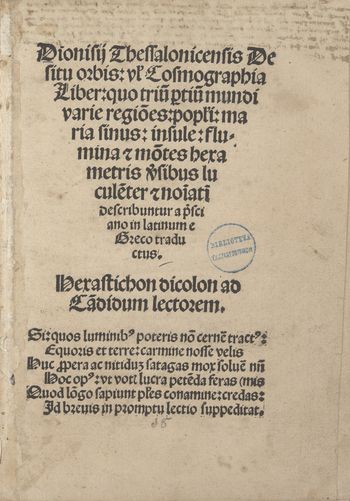 Dionisij Thessalonicensis De
situ orbis: vł Cosmographia
Liber: quo triũ ꝑtiũ mundi
varie regiões: popľi: ma
ria sinus: insule: flu-
mina ⁊ mõtes hexa
metris v̓sibus lu
culẽter ⁊ noīati
describuntur a p̓sci
ano in latinum e
Greco tradu
ctus.
Hexastichon dicolon ad
Cãdidum lectorem.
Si quos luminibꝰ poteris nõ cernẽ tractꝰ:
Equoris et terre: carmine nosse velis
Huc ꝓpera ac nitidũ satagas mox soluẽ
Hoc opꝰ: vt voti lucra petẽda feras (mis
Quod lõgo sapiunt conamine: credas:
Id breuis in promptu lectio suppeditat.
BIBLIOTEKA